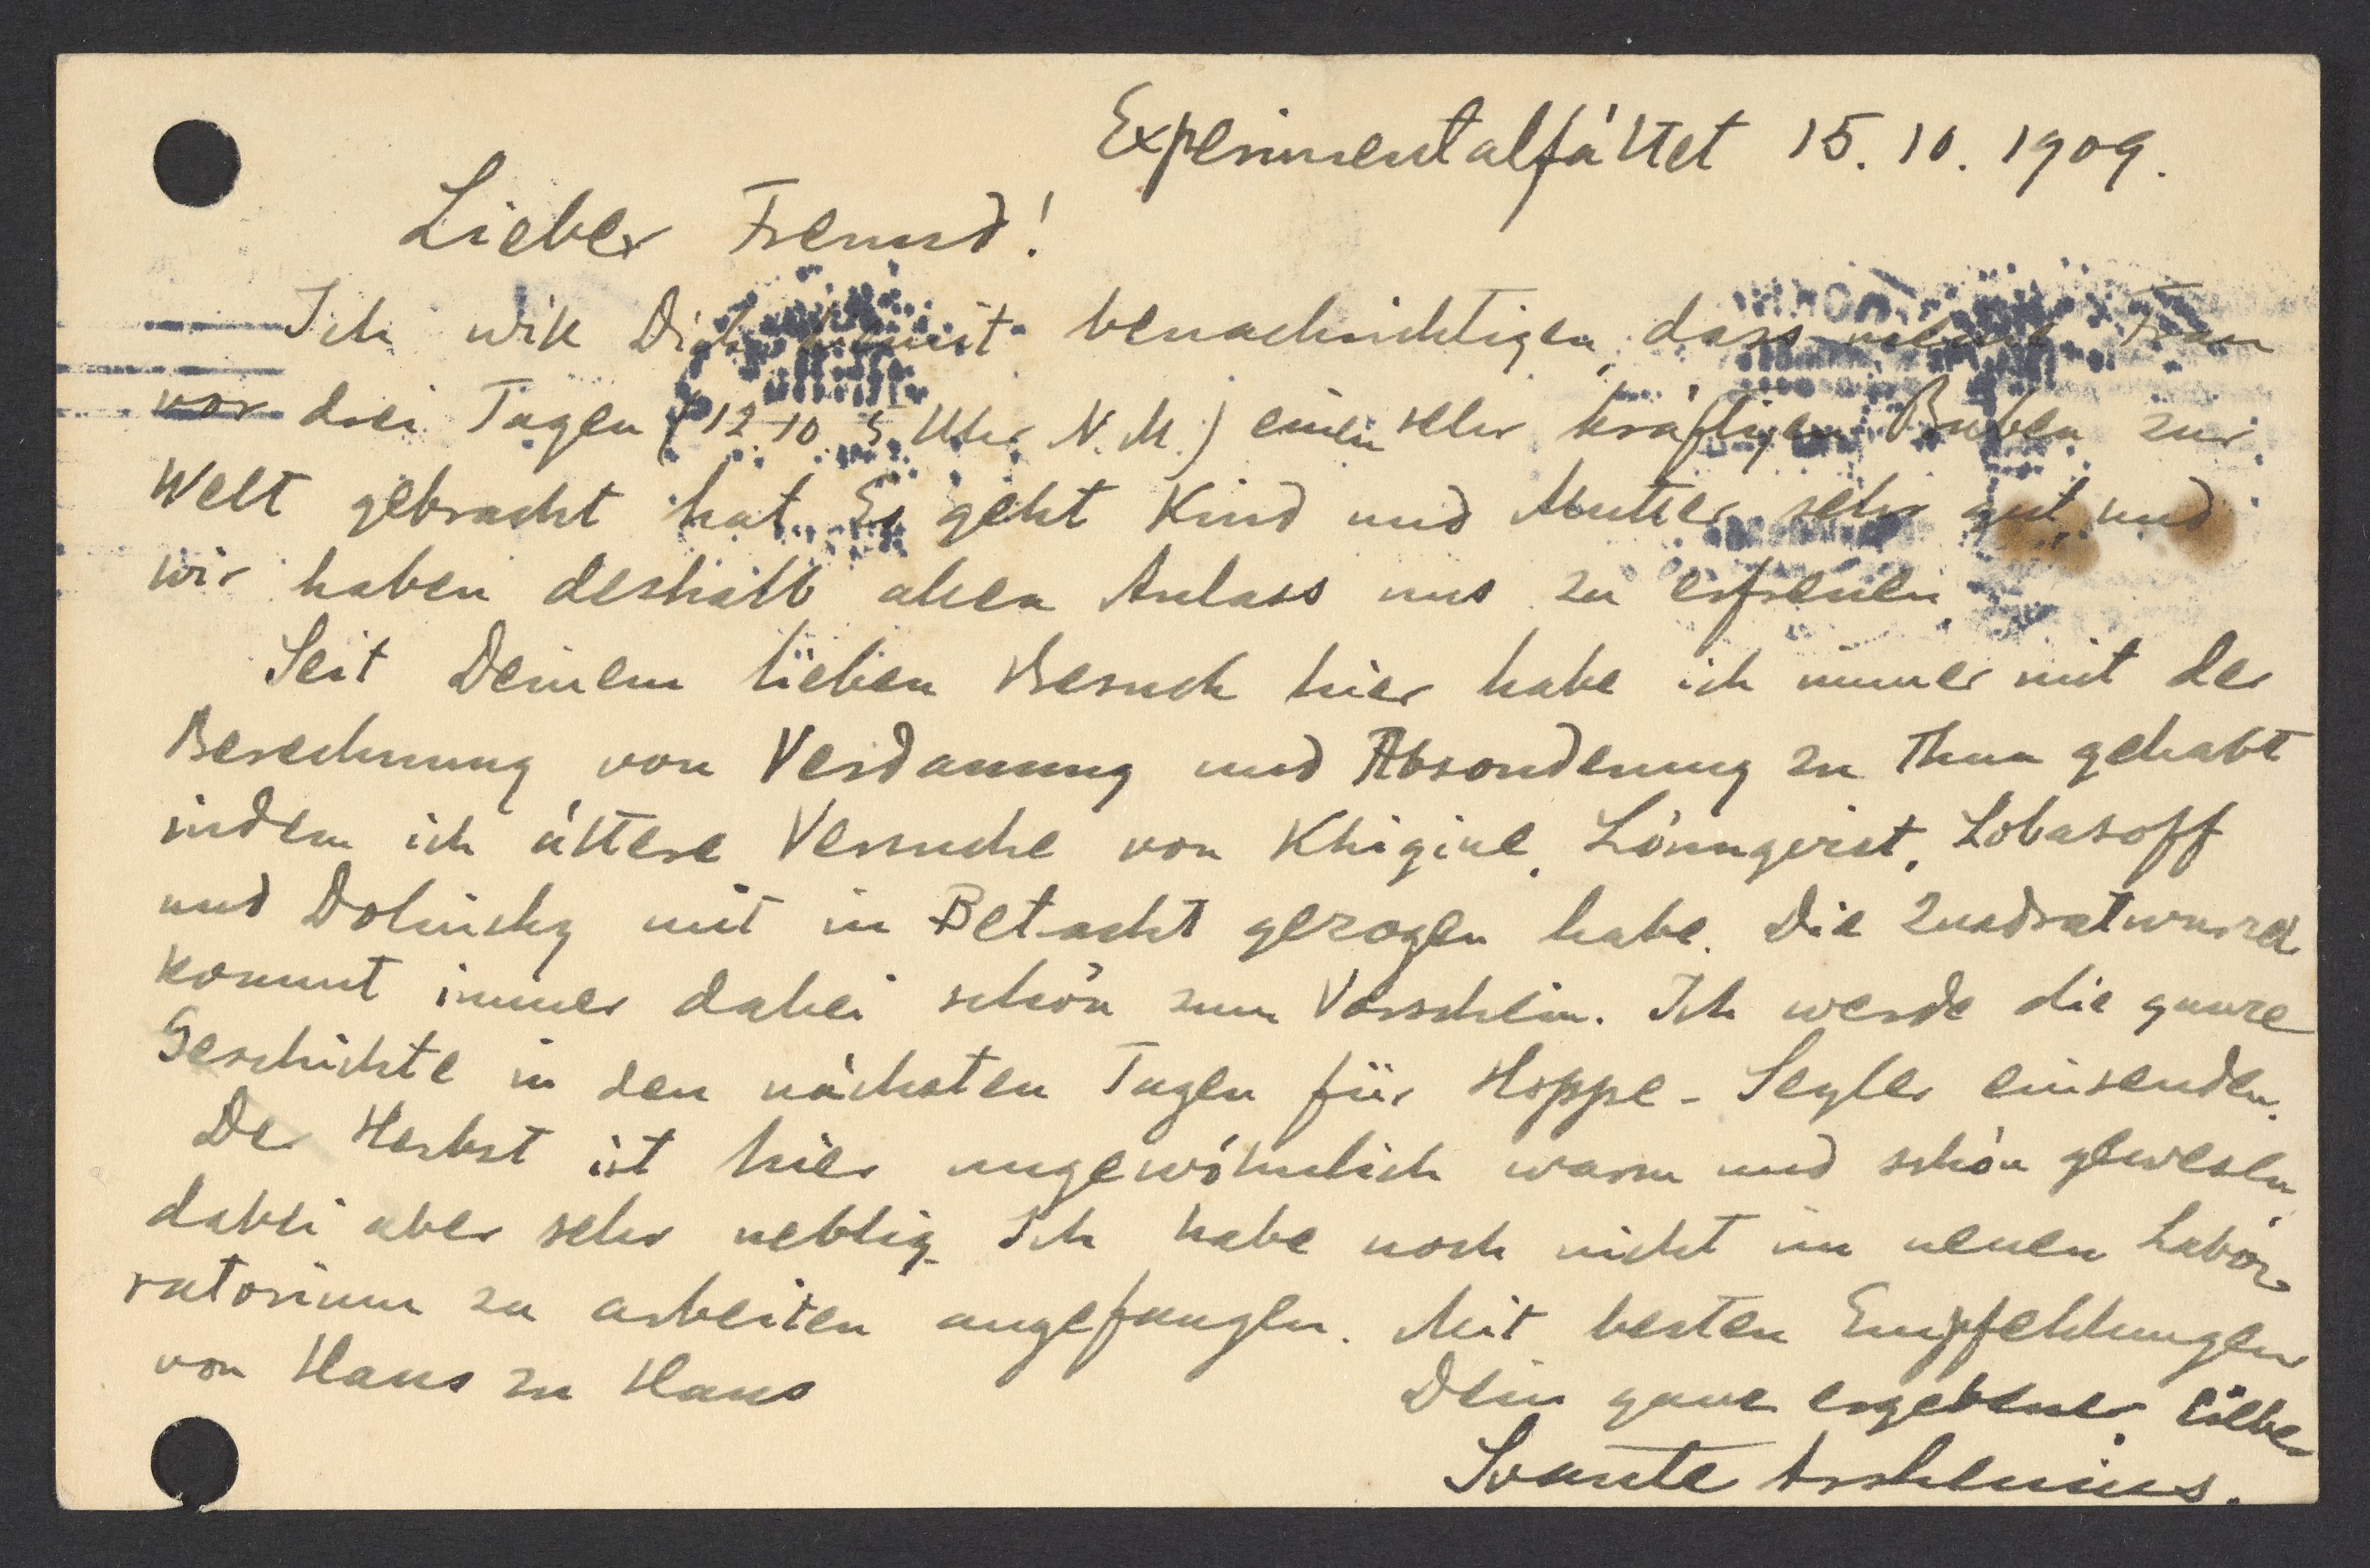 Experimentalfältet 15. 10. 1909.
Lieber Freund!
Ich will Dich hiermit benachrichtigen, dass meine Frau
vor drei Tagen (12.10. 5 Uhr N.M.) einen sehr kräftigen Buben zur
Welt gebracht hat. Es geht Kind und Mutter sehr gut und
wir haben deshalb allen Anlass uns zu erfreuen.
Seit Deinem lieben Besuch hier habe ich immer mit der
Berechnung von Verdauung und Absonderung zu Thun gehabt
indem ich ältere Versuche von Khigine, Lönnqvist, Lobasoff
und Dolinsky mit in Betracht gezogen habe. Die Quadratwurzel
kommt immer dabei schön zum Vorschein. Ich werde die ganze
Geschichte in den nächsten Tagen für Hoppe-Seyler einsenden.
Der Herbst ist hier ungewöhnlich warm und schön gewesen,
dabei aber sehr neblig. Ich habe noch nicht im neuen Labo-
ratorium zu arbeiten angefangen. Mit besten Empfehlungen
von Haus zu Haus
Dein ganz ergebener
Svante Arrhenius.